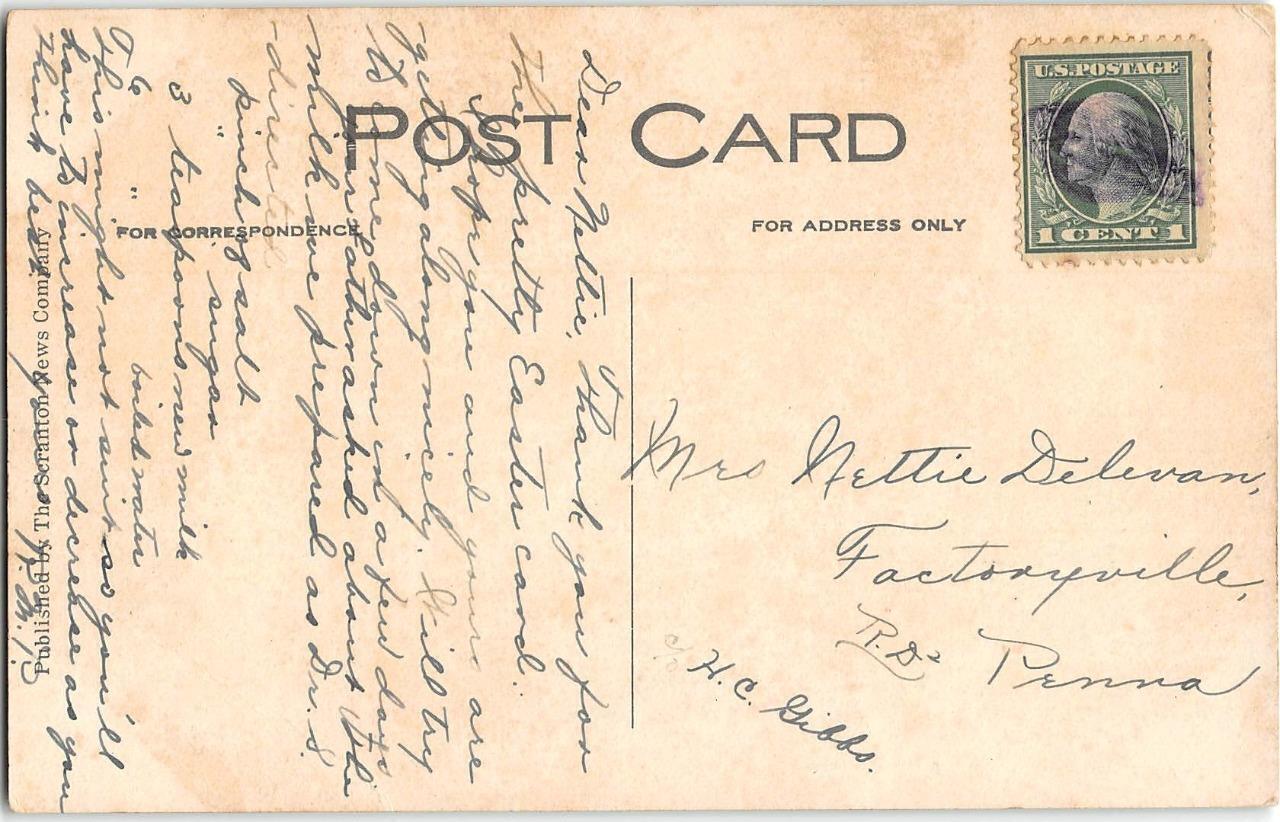 POST CARD
FOR CORRESPONDENCE
FOR ADDRESS ONLY
U.S. POSTAGE
1 CENT 1
Dear Nettie, Thank you for
the pretty Easter card.
I hope you and yours are
getting along nicely. Will try
to come down in a few days
Her father asked about the
milk we prepared as Dr. S.
directed
pinch of salt
" " sugar
3 teaspoons new milk
6 " boiled water
This might not suit so you'll
have to increase or decrease as you
think best.
Mrs Nettie Delevan,
Factoryville,
R.D. 2
Penna
c/o H. C. Gibbs.
Published by The Scranton News Company